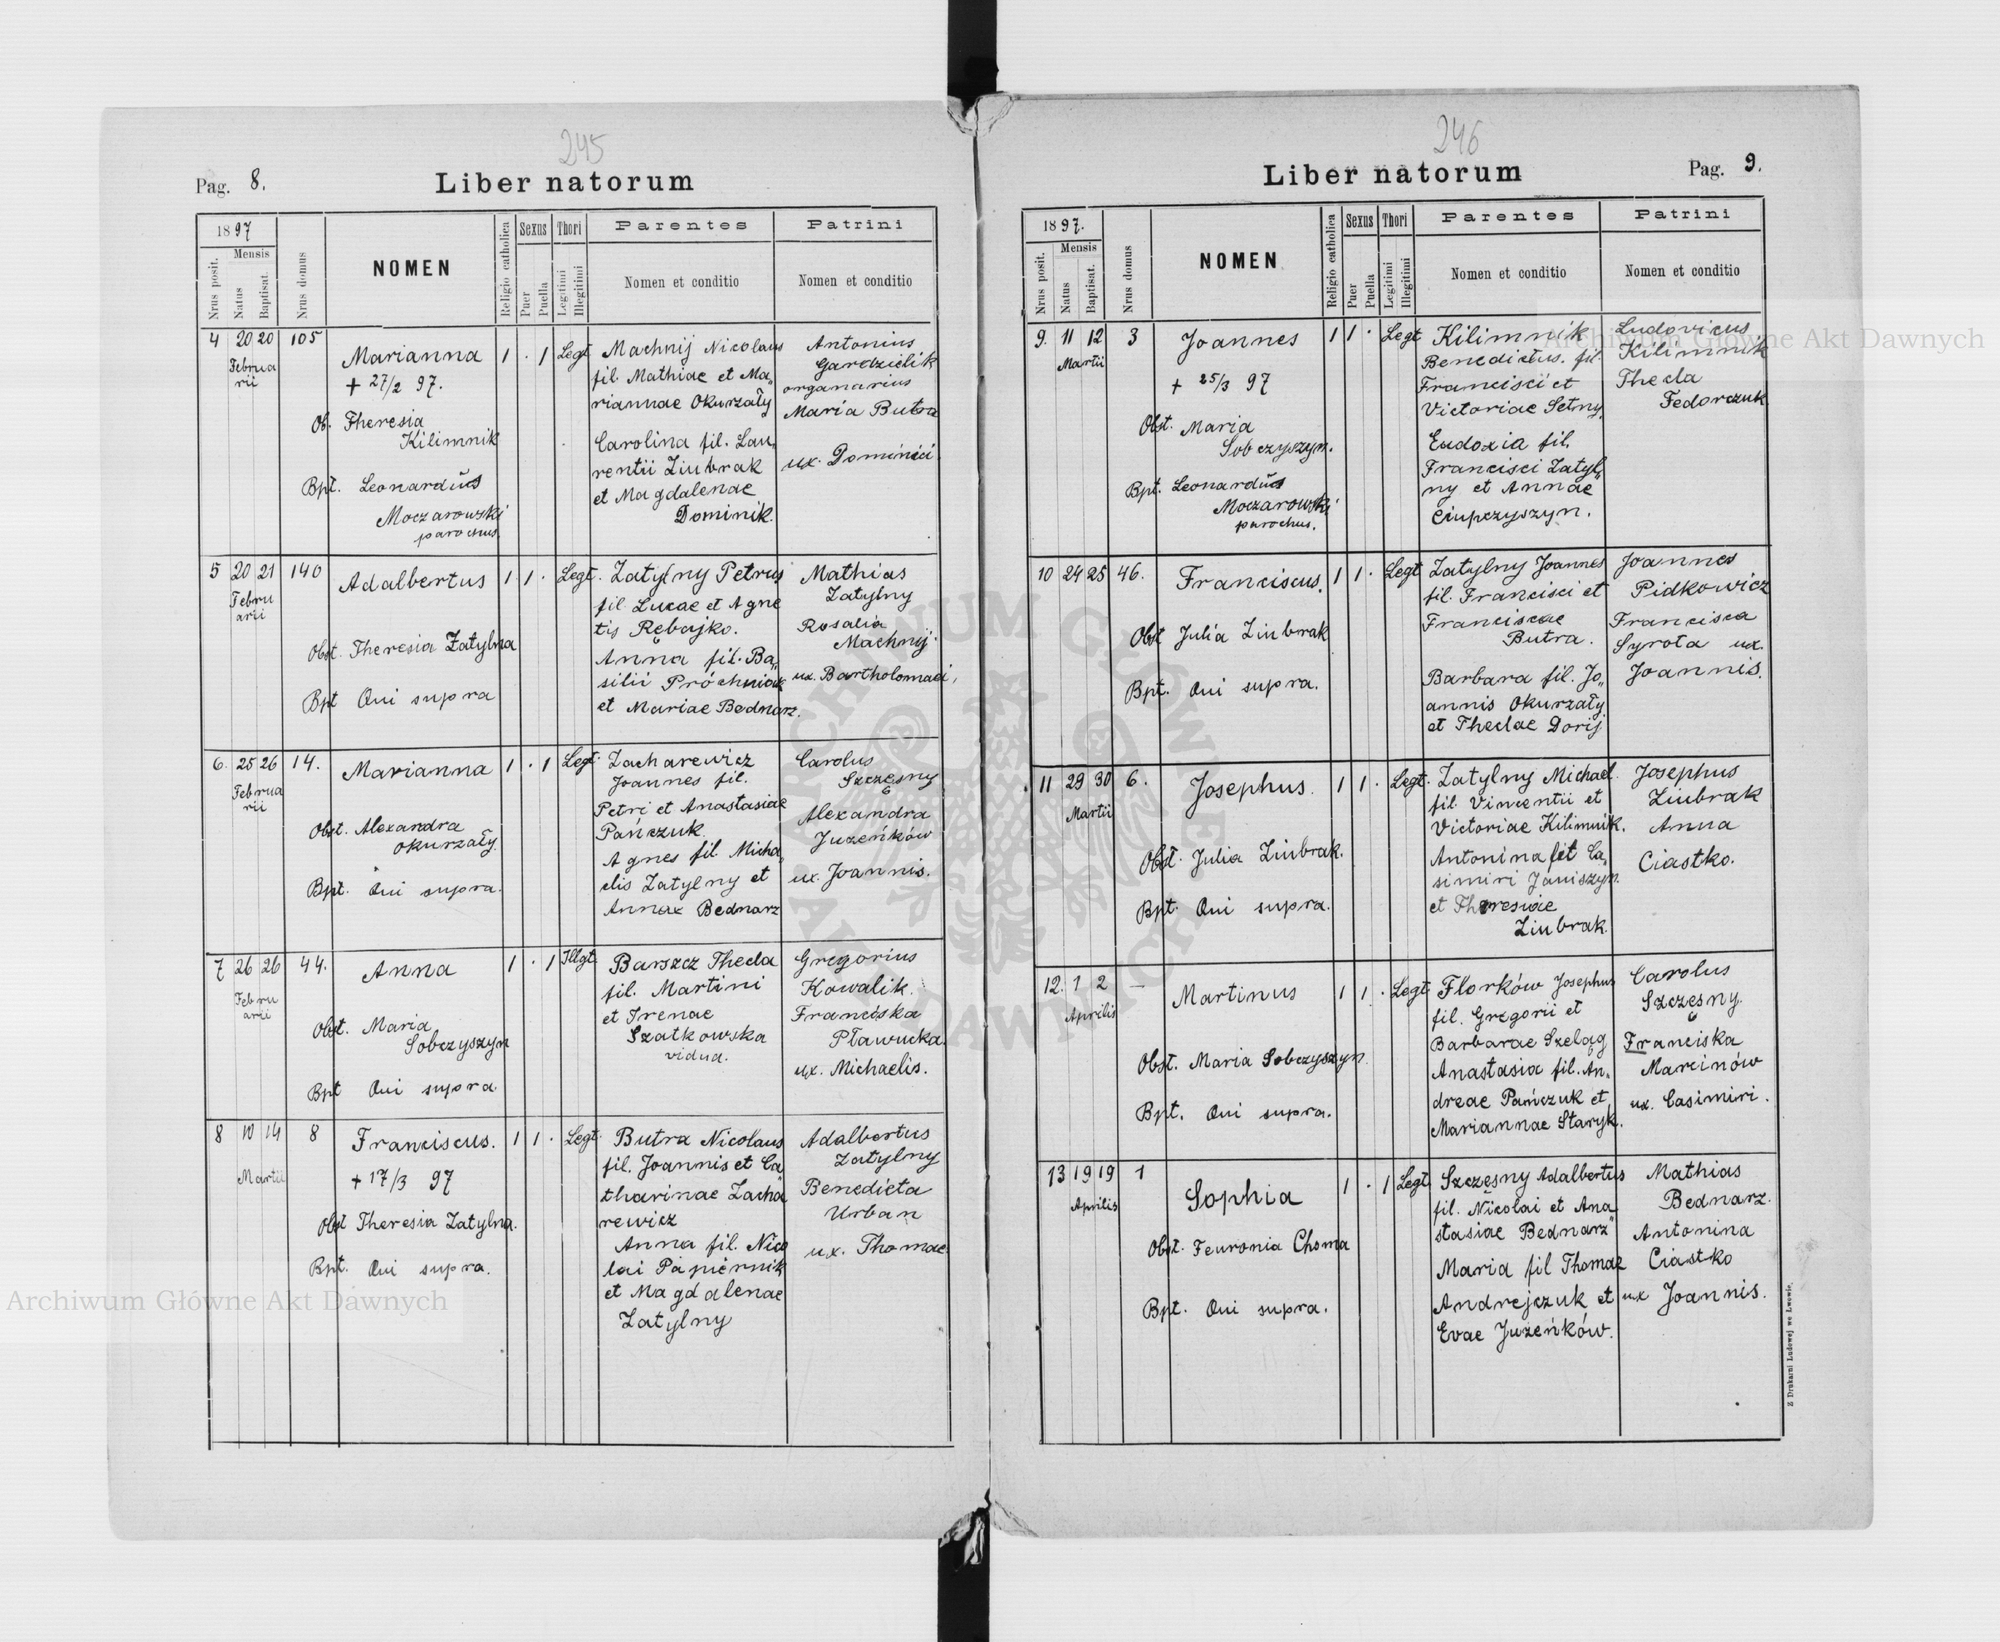 245
Pag. 8.
Liber natorum
1897
Nrus posit.
Mensis
Natus
Baptisat.
Nrus domus
NOMEN
Religio catholica
Sexus
Puer
Puella
Thori
Legitimi
Illegitimi
Parentes
Nomen et conditio
Patrini
Nomen et conditio
4 20 20 105
Februa
rii
Marianna
+ 27/2 97.
Ob. Theresia
Kilimnik
Bpt. Leonardus
Moczarowski
parochus.
1 . 1 Legt
Machnij Nicolaus
fil. Mathiae et Ma„
riannae Okurzały
Carolina fil. Lau„
rentii Ziubrak
et Magdalenae
Dominik.
Antonius
Gardzielik
organarius
Maria Butra
ux. Dominici.
5 20 21 140
Febru
arii
Adalbertus
Obst. Theresia Zatylna
Bpt Qui supra
1 1 . Legt.
Zatylny Petrus
fil. Lucae et Agne
tis Rębajko.
Anna fil. Ba„
silii Próchniak
et Mariae Bednarz.
Mathias
Zatylny
Rosalia
Machnij
ux. Bartholomaei,
6. 25 26 14.
Februa
rii
Marianna
Obst. Alexandra
Okurzały.
Bpt. Qui supra.
1 . 1 Legt.
Zacharewicz
Joannes fil.
Petri et Anastasiae
Pańczuk.
Agnes fil. Micha„
elis Zatylny et
Annae Bednarz
Carolus
Szczęsny
Alexandra
Juzeńków
ux. Joannis.
7 26 26 44.
Febru
arii
Anna
Obst. Maria
Sobczyszyn
Bpt Qui supra.
1 . 1 Illgt.
Barszcz Thecla
fil. Martini
et Irenae
Szatkowska
vidua.
Gregorius
Kowalik.
Franciska
Pławucka.
ux. Michaelis.
8 10 14 8
Martii
Franciscus.
+ 17/3 97
Obst Theresia Zatylna.
Bpt. Qui supra.
1 1 . Legt.
Butra Nicolaus
fil. Joannis et Ca
tharinae Zacha
rewicz
Anna fil. Nico
lai Papiernik
et Magdalenae
Zatylny
Adalbertus
Zatylny
Benedicta
Urban
ux. Thomae
246
Liber natorum
Pag. 9.
1897.
Nrus posit.
Mensis
Natus
Baptisat.
Nrus domus
NOMEN
Religio catholica
Sexus
Puer
Puella
Thori
Legitimi
Illegitimi
Parentes
Nomen et conditio
Patrini
Nomen et conditio
9. 11 12 3
Martii
Joannes
+ 25/3 97
Obst. Maria
Sobczyszyn.
Bpt. Leonardus
Moczarowski
parochus.
1 1 . Legt
Kilimnik
Benedictus. fil.
Francisci et
Victoriae Setny.
Eudoxia fil.
Francisci Zatyl„
ny et Annae
Ciupczyszyn.
Ludovicus
Kilimnik
Thecla
Fedorczuk
10 24 25 46.
Franciscus.
Obst Julia Ziubrak
Bpt. Qui supra.
1 1 . Legt
Zatylny Joannes
fil. Francisci et
Franciscae
Butra.
Barbara fil. Jo„
annis Okurzały
et Theclae Dorij
Joannes
Pidkowicz
Francisca
Syrota ux.
Joannis.
11 29 30 6.
Martii
Josephus.
Obst. Julia Ziubrak.
Bpt. Qui supra.
1 1 . Legt.
Zatylny Michael.
fil. Vincentii et
Victoriae Kilimnik.
Antonina fil. Ca„
simiri Janiszyn.
et Theresiae
Ziubrak.
Josephus
Ziubrak
Anna
Ciastko.
12. 1 2 —
Aprilis
Martinus
Obst. Maria Sobczyszyn.
Bpt. Qui supra.
1 1 . Legt.
Florków Josephus
fil. Gregorii et
Barbarae Szeląg
Anastasia fil. An„
dreae Pańczuk et
Mariannae Staryk.
Carolus
Szczęsny.
Franciska
Marcinów
ux. Casimiri.
13 19 19 1
Aprilis
Sophia
Obst. Feuronia Choma
Bpt. Qui supra.
1 . 1 Legt.
Szczęsny Adalbertus
fil. Nicolai et Ana
stasiae Bednarz
Maria fil Thomae
Andrejczuk et
Evae Juzeńków.
Mathias
Bednarz.
Antonina
Ciastko
ux Joannis.
Z Drukarni Ludowej we Lwowie.
Archiwum Główne Akt Dawnych
Archiwum Główne Akt Dawnych
ARCHIWUM GŁÓWNE AKT DAWNYCH